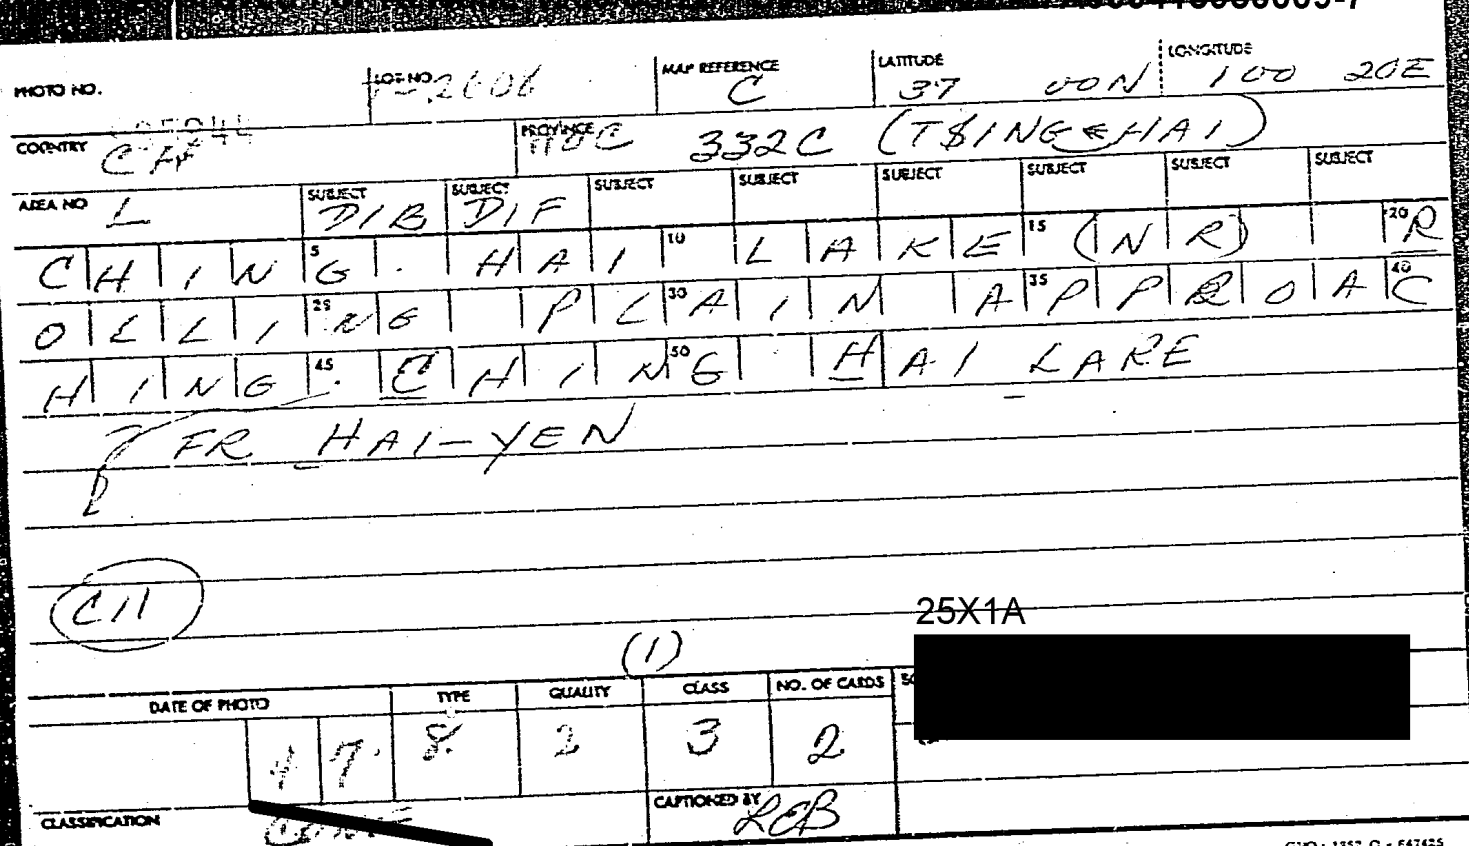 PHOTO NO. LOT NO. 2606 MAP REFERENCE C LATITUDE 37 00N LONGITUDE 100 20E
COUNTRY CH PROVINCE 332C (TSING-HAI)
AREA NO L SUBJECT DIB SUBJECT DIF SUBJECT SUBJECT SUBJECT SUBJECT SUBJECT SUBJECT
CHING 5 . HAI 10 LAKE 15 (NR) 20 R
OLLING 25 PL 30 AIN A 35 PPROAC 40
HING 45 . CHING 50 HAI LAKE
FR HAI-YEN
C11
25X1A
(1)
DATE OF PHOTO TYPE QUALITY CLASS NO. OF CARDS
47 8 2 3 2
CLASSIFICATION CAPTIONED BY REB